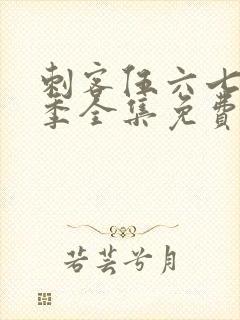 刺客伍六七
季全集免费
若芸兮月